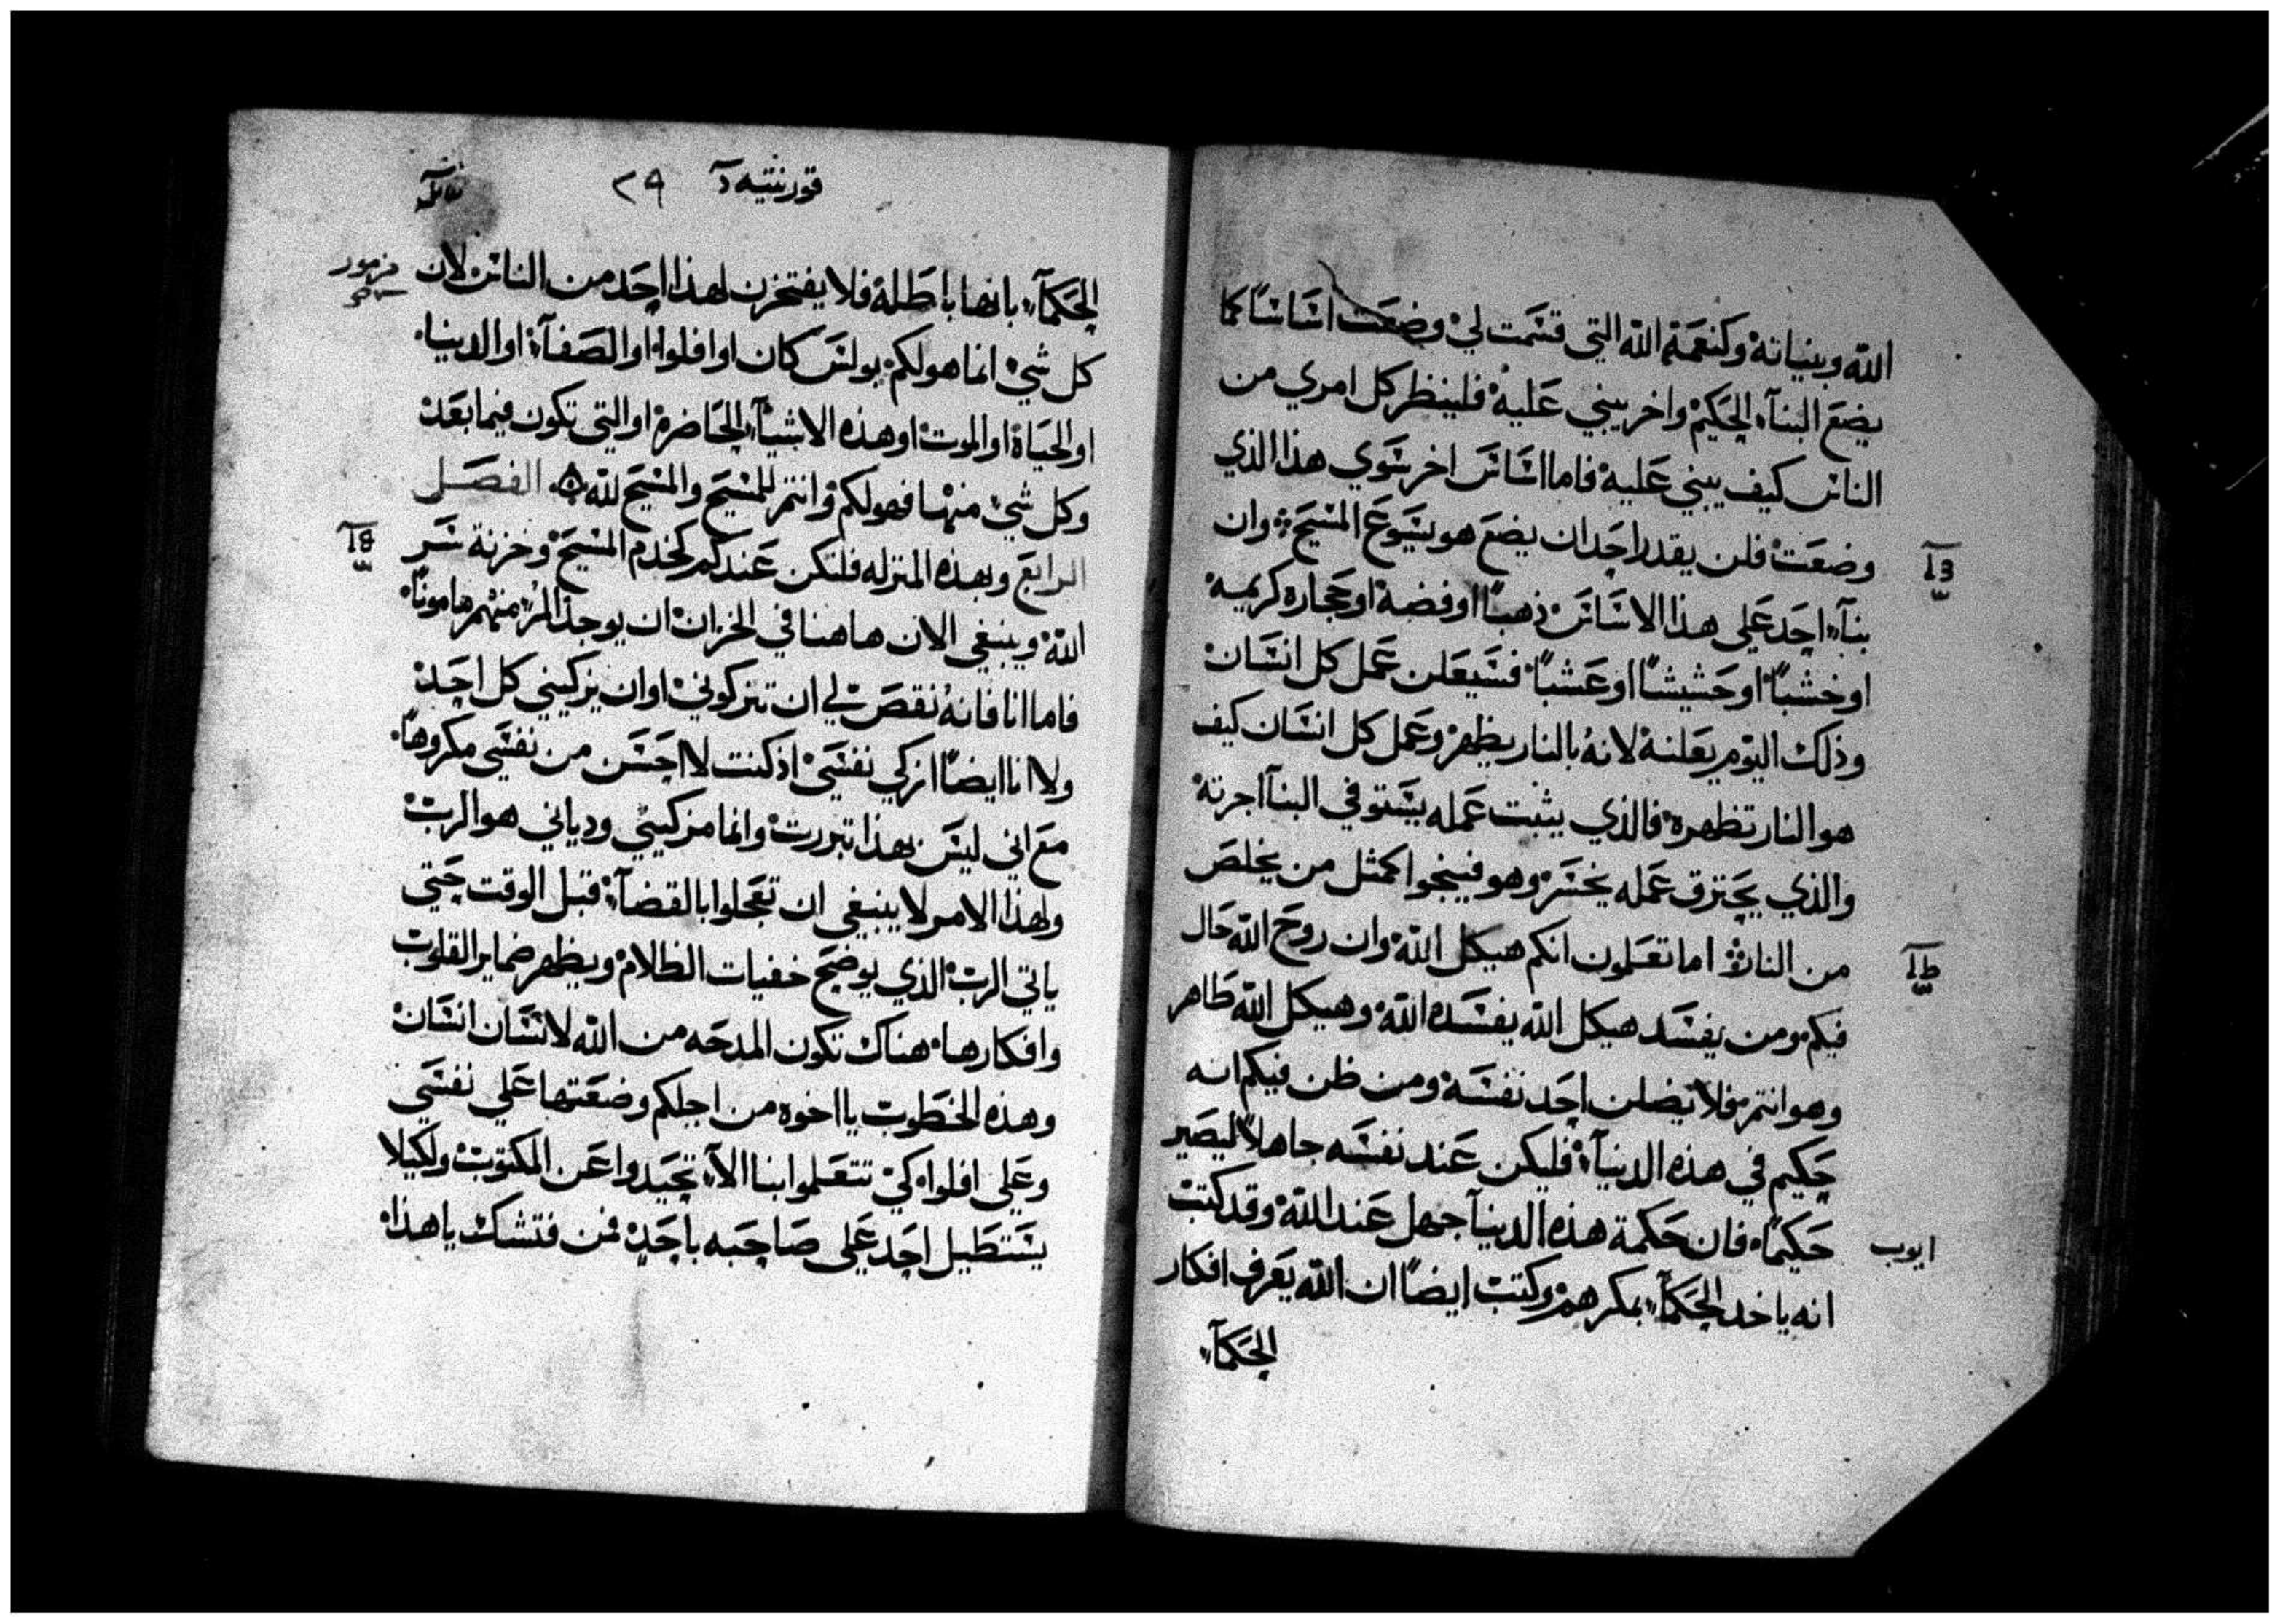 الله وبنيانه وكنعمة الله التي قسمت لي وضعت اساسا كما
يضع البنآء الحكيم واخر يبني عليه فلينظر كل امري من
الناس كيف يبني عليه فاما اساس اخر سوي هذا الذي
وضعت فلن يقدر احد ان يضع هو يسوع المسيح وان
بنآء احد علي هذا الاساس ذهبا او فضة او حجاره كريمه
او خشبا او حشيشا او عشبا فسيعلن عمل كل انسان
وذلك اليوم يعلنه لانه بالنار يظهر وعمل كل انسان كيف
هو النار تظهره فالذي يثبت عمله يستوفي البنآ اجرته
والذي يحترق عمله يخسر وهو فينجوا كمثل من يخلص
من النار اما تعلمون انكم هيكل الله وان روح الله حال
فيكم ومن يفسد هيكل الله يفسده الله وهيكل الله طاهر
وهو انتم فلا يضلن احد نفسه ومن ظن فيكم انه
حكيم في هذه الدنيآ فليكن عند نفسه جاهلا ليصير
حكيما فان حكمة هذه الدينآ جهل عند الله وقد كتب
ايوب
انه ياخد الحكمآء بمكرهم وكتب ايضا ان الله يعرف افكار
الحكمآء
قورنتيه آ ٢٩
الحكمآء بانها باطلة فلا يفتخرن لهذا احد من الناس لان
مزمور
كل شي انما هو لكم بولس كان او افلوا او الصفآء او الدنيا
او الحياة او الموت او هذه الاشيآء الحاضرة او التي تكون فيما بعد
وكل شي منها فهو لكم وانتم للمسيح والمسيح لله الفصل
الرابع وبهذه المنزله فلتكن عندكم كخدم المسيح وخزنة سر
الله وينبغي الان هاهنا في الخزان ان يوجد المرء منهم مامونا
فاما انا فانه نقص لي ان تزكوني او ان يزكيني كل احد
ولا انا ايضا ازكي نفسي اذ كنت لا احسن من نفسي مكروها
مع اني ليس بهذا تبررت وانما مزكيني ودياني هو الرب
ولهذا الامر لا ينبغي ان تعجلوا بالقضآء قبل الوقت حتي
ياتي الرب الذي يوضح خفيات الظلام ويظهر ضماير القلوب
وافكارها هناك تكون المدحه من الله لانسان انسان
وهذه الخطوب يا اخوه من اجلكم وضعتها علي نفسي
وعلي افلوا كي تتعلموا بنا الآء تحيدوا عن المكتوب ولكيلا
يستطيل احد علي صاحبه باحد فمن فتشك يا هذا